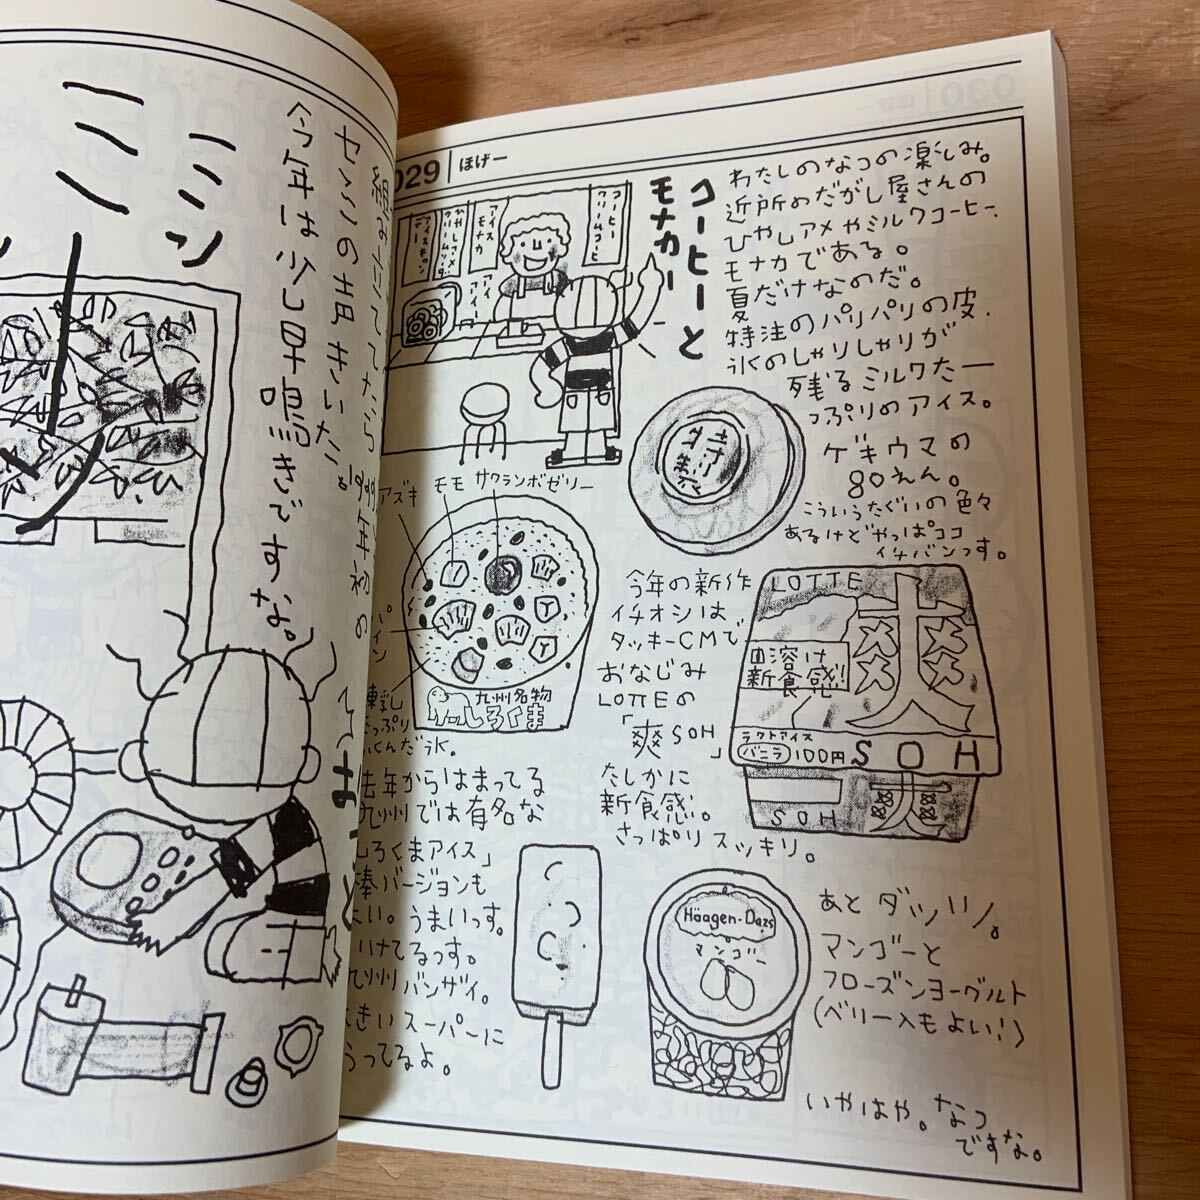 ミーン
ミーン
縁
1999年初の
セミの声きいた。
今年は少し早鳴きですな。
029 ほげー
コーヒーと
モナカー
コーヒー
クリームコーヒー
アイス
モナカ
アイス
わたしのなつの楽しみ。
近所のだがし屋さんの
ひやしアメやミルクコーヒー、
モナカである。
夏だけなのだ。
特注のパリパリの皮、
氷のしゃりしゃりが
残るミルクたー
っぷりのアイス。
ゲキウマの
80えん。
こういうたぐいの色々
あるけどやっぱココ
イチバンっす。
アズキ
モモ
サクランボゼリー
パイン
練乳
九州名物
しろくま
去年からはまってる
九州では有名な
しろくまアイス」
棒バージョンも
よい。うまいっす。
いけてるっす。
九州バンザイ。
大きいスーパーに
うってるよ。
今年の新作
イチオシは
タッキーCMで
おなじみ
LOTTEの
「爽SOH」
たしかに
新食感。
さっぱりスッキリ。
LOTTE
爽
溶け
新食感!
ラクトアイス
バニラ 100円
SOH
SOH
爽
Häagen-Dazs
マンゴー
あとダッツいいノ。
マンゴーと
フローズンヨーグルト
(ベリー入もよい!)
いやはや。なつ
ですな。